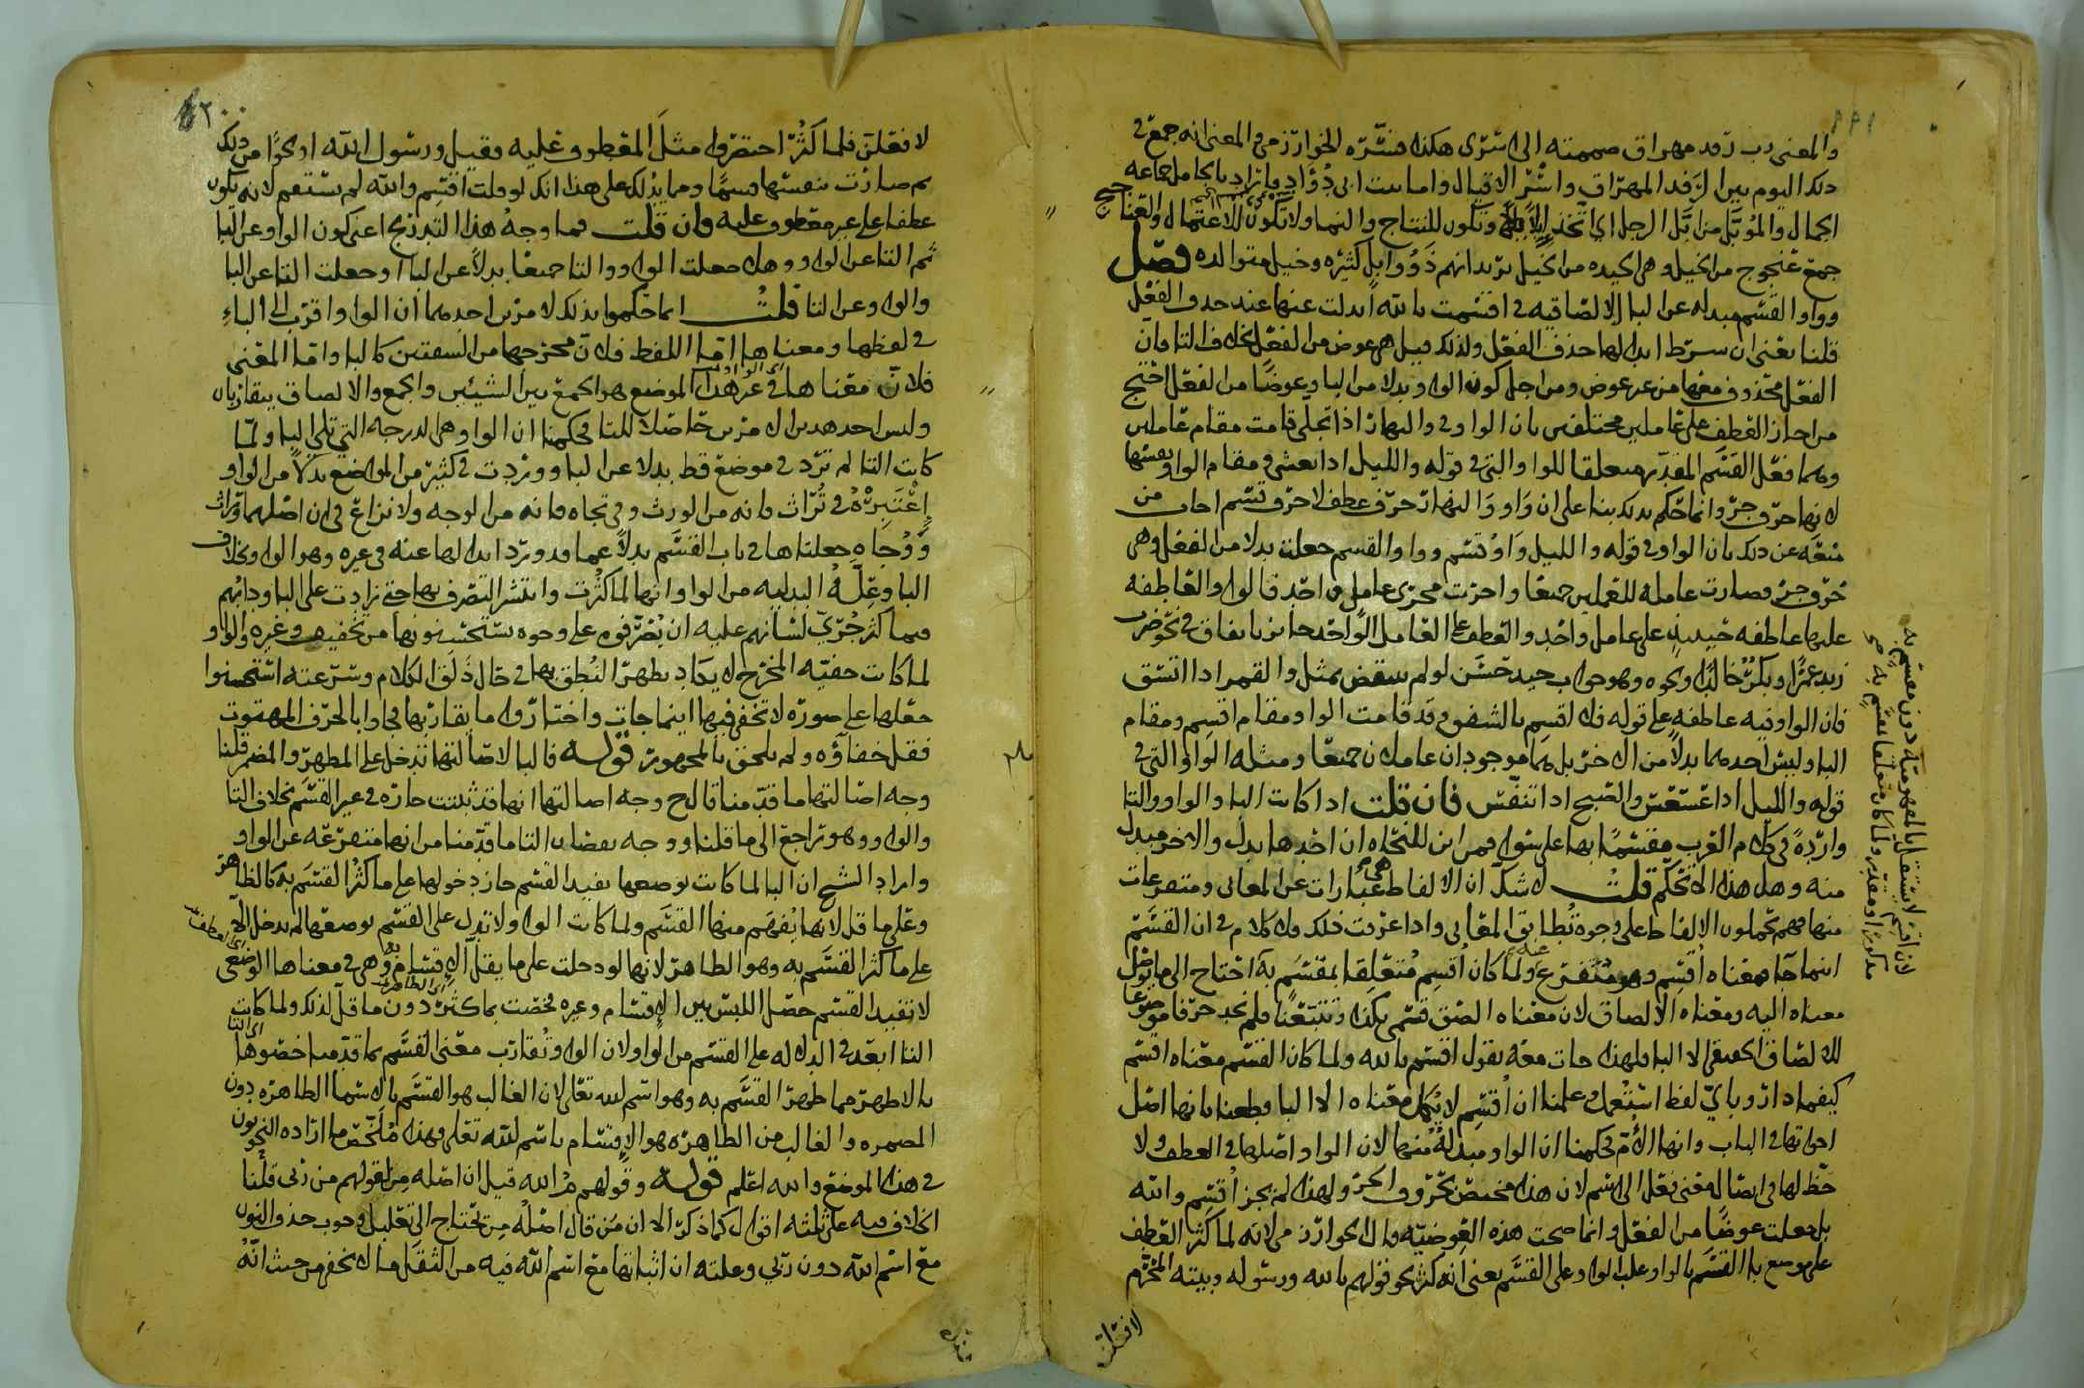 ١٩٩
والمعنى رب رفد مهراق ضممته الى اسرى هكذا فسّره الخوارزمي والمعنى انه جمع في
ذلك اليوم بين الرفد المهراق واسْر الاقيال واما بيت ابي دُؤادٍ فإنراد بالجامل جماعه
الجمال والمُوبَّل من ابّل الرجل اي اتخذ إبلاً وتكون للنتاج والنما ولا تكون للاعتمال والعناجيج
جمع عُنجوج من الخيل وهي الجيده من الخيل يريد انهم ذَوُوا إبل كثيره وخيل متوالده فصل
وواو القسم مبدله عن البا الالصاقيه في اقسمت بالله أبدلت عنها عند حذف الفعل
قلنا يعني ان شرط ابدالها حذف الفعل ولذلك قيل هي عوض من الفعل بخلاف التا فان
الفعل محذوف معها من غير عوض ومن اجل كون الواو بدلا من البا وعوضًا من الفعل احتج
من اجاز العطف على عاملين مختلفين بان الواو في والنهار اذا تجلى قامت مقام عاملين
وهما فعل القسم المقدّر متعلقا للواو التي في قوله والليل اذا يغشى وفي مقام الواو نفسها
لانها حرف جرّ وانما حكم بذلك بنا على ان وَاو وَالنهار حرف عطف لا حرف قسم اجاب من
منعه عن ذلك بان الواو في قوله والليل وَاوُ قسم وواو القسم جعلت بدلا من الفعل وهي
حرف جرّ وصارت عامله للعملين جميعًا واجرت مجرى عامل واحد قالوا والعاطفه
عليها عاطفه حينئذٍ على عامل واحد والعطف على العامل الواحد جايز باتفاق في نحو ضرب
زيد عمرًا وبكرٌ خالدًا ونحوه وهو جواب جيد حَسَن لو لم ينتقض بمثل والقمر اذا اتسق
فان الواو فيه عاطفه على قوله فلا اقسم بالشفق وقد قامت الواو مقام اقسم ومقام
البا وليس احدهما بدلاً من الاخر بل هما موجودان عاملان جميعًا ومثله الواو التي في
قوله والليل اذا عَسْعَسَ والصبح اذا تنفس فان قلت اذا كانت البا والواو والتا
واردةً في كلام العرب مقسَمًا بها على سوا فمن اين للنحاه ان احدها بدل والاخر مبدل
منه وهل هذا الا تحكّم قلت لا شكّ ان الالفاظ هي عبارات عن المعاني ومتفرعات
منها فهم يحملون الالفاظ على وجوه تُطابق المعاني واذا عرفت ذلك فلا كلام في ان القسَم
انما جا معناه اُقسِم وهو مُتفرع عنه ولما كان اُقسم مُتعلِقا بمقسَمٍ به احتاج الى ما يوصل
معناه اليه ومعناه الالصاق لان معناه الصق قسمي بكذا وتتبّعْنا فلم نجد حرفا موضوعا
للالصاق الحقيقي الا البا فلهذا جات معه يقول اقسم بالله ولما كان القسم معناه اقسم
كيفما دار وبايّ لفظ استُعمل وعلمنا ان اُقسِم لا يُكمل معناه الا البا قطعنا بانها اصل
اخواتها في الباب وانها الاُمّ فحكمنا ان الواو مبدلةٌ منها لان الواو اصلها في العطف ولا
حظّ لها في ايصال معنى فعل الى اسم لان هذا مختص بحروف الجرّ ولهذا لم يجز اُقسِم والله
بل جعلت عوضًا من الفعل وانما صحت هذه العِوضيّه قال الخوارزمي لانه لما كثر العطف
على موضع بلا القسَم بالواو غلب الواو على القسَم يعني انه كثر نحو قولهم بالله ورسوله وبيته المحرّم
لان اقسم لا يستقل بالمفهوميّه دون مقسم به
مذكورًا او مقدّر ولما كان متعلقا بمقسَمٍ به صح
لافعلنّ
٢٠٠
لافعلنّ فلما كَثُر احتقروا مثلَ المعطوف عليه فقيل ورسول الله او نحوًا من ذلك
ثم صارت بنفسها قسمًا ومما يدلك على هذا انك لو قلت اقسِم والله لم يستقم لانه يكون
عطفا على غير معطوف عليه فان قلت فما وجهُ هذا التدريج اعني كون الواو عن البا
ثم التا عن الواو وهلا جعلت الواو والتا جميعًا بدلاً عن البا او جعلت التا عن البا
والواو عن التا قلتُ انما حكموا بذلك لامرين احدهما أن الواو اقرب الى الباءِ
في لفظها ومعناها امّا اللفظ فلانّ مخرجها من الشفتين كالبا وامّا المعنى
فلانّ معناها في غير هذا الموضع هو الجمع بين الشيئين والجمع والالصاق يتقاربان
وليس احد هذين الامرين حَاصلا للتا فحكمنا ان الواو هي الدرجه التي تلي البا ولمّا
كانت التا لم ترد في موضع قط بدلا عن البا ووردت في كثير من المواضع بدلاً من الواو
إعْتَبِرْهُ في تُراث فانه من الورث وفي تجاه فانه من الوجه ولا نزاعَ في ان اصلهما وُرَاث
وَوُجَاه جعلناها في باب القسَم بدلاً عما قد ورد ابدالها عنه في غيره وهو الواو بخلاف
البا وعِلّةُ البدليه من الواو انها لما كثُرت وانتشر التصرف بها حتى زادت على البا ودابُهم
فيما كثر جُرْيُ لسَانهم عليه ان يُصَرّفوه على وجوه يستحسنونها من تخفيف وغيره والواو
لما كانت خفيّه المخرج لا يكاد يظهر النُطق بها في حَال ذَلَق الكلام وسُرعته استحسنوا
جعلها على صورة لا تخفى فيها اينما جات واختاروا ما يقاربها فجاوا بالحرف المهتوت
فقل خفاؤه ولم يلحق بالمجهور قوله فالبا لاصالتها تدخل على المظهر والمضمر قلنا
وجه اصالتها ما قدّمنا قال ح وجه اصالتها انها قد ثبتت جارّه في غير القسَم بخلاف التا
والواو وهو راجع الى ما قلنا ووجه نقصان التا ما قدّمنا من انها متفرّعه عن الواو
واراد الشيخ ان البا لما كانت بوضعها تفيد القسم جاز دخولها على ما كثُر القسَم به كالظاهر
وعلى ما قل لانها يُفهَم منها القسَم ولما كانت الواو لا تدل على القسَم بوضعها لم يدخل الا
على ما كثر القسَم به وهو الظاهر لانها لو دخلت على ما يقلّ الاقسَام به وهي في معناها الوضعي
لا تفيد القسم حصل اللبس بين الاقسَام وغيره فخصّت بما كثرَ دون ما قلّ لذلك ولما كانت
التا ابعد في الدلاله على القسم من الواو ولان الواو تُقارب معنى القسَم بما قدّمنا خصّوها
بالاظهر مما ظهر القسَم به وهو اسم الله تعالى لان الغالب هو القسَم بالاسما الظاهره دون
المضمره والغالب من الظاهره هو الإقسَام باسم الله تعلى فهذا مُلخّص ما اراده النحويون
في هذا الموضع والله اعلم قوله وقولهم مُ الله قيل ان اصله مِن لقولهم من رَبي قلنا
الخلاف فيه على ثلثه اقوال كما ذكر الا ان مَن قال اصلُه مِن يحتاج الى تعليل وجوب حذف النون
مع اسم الله دون ربّي وعلته ان اثباتها مع اسم الله فيه من الثقل ما لا يخفى من حيث انّهُ